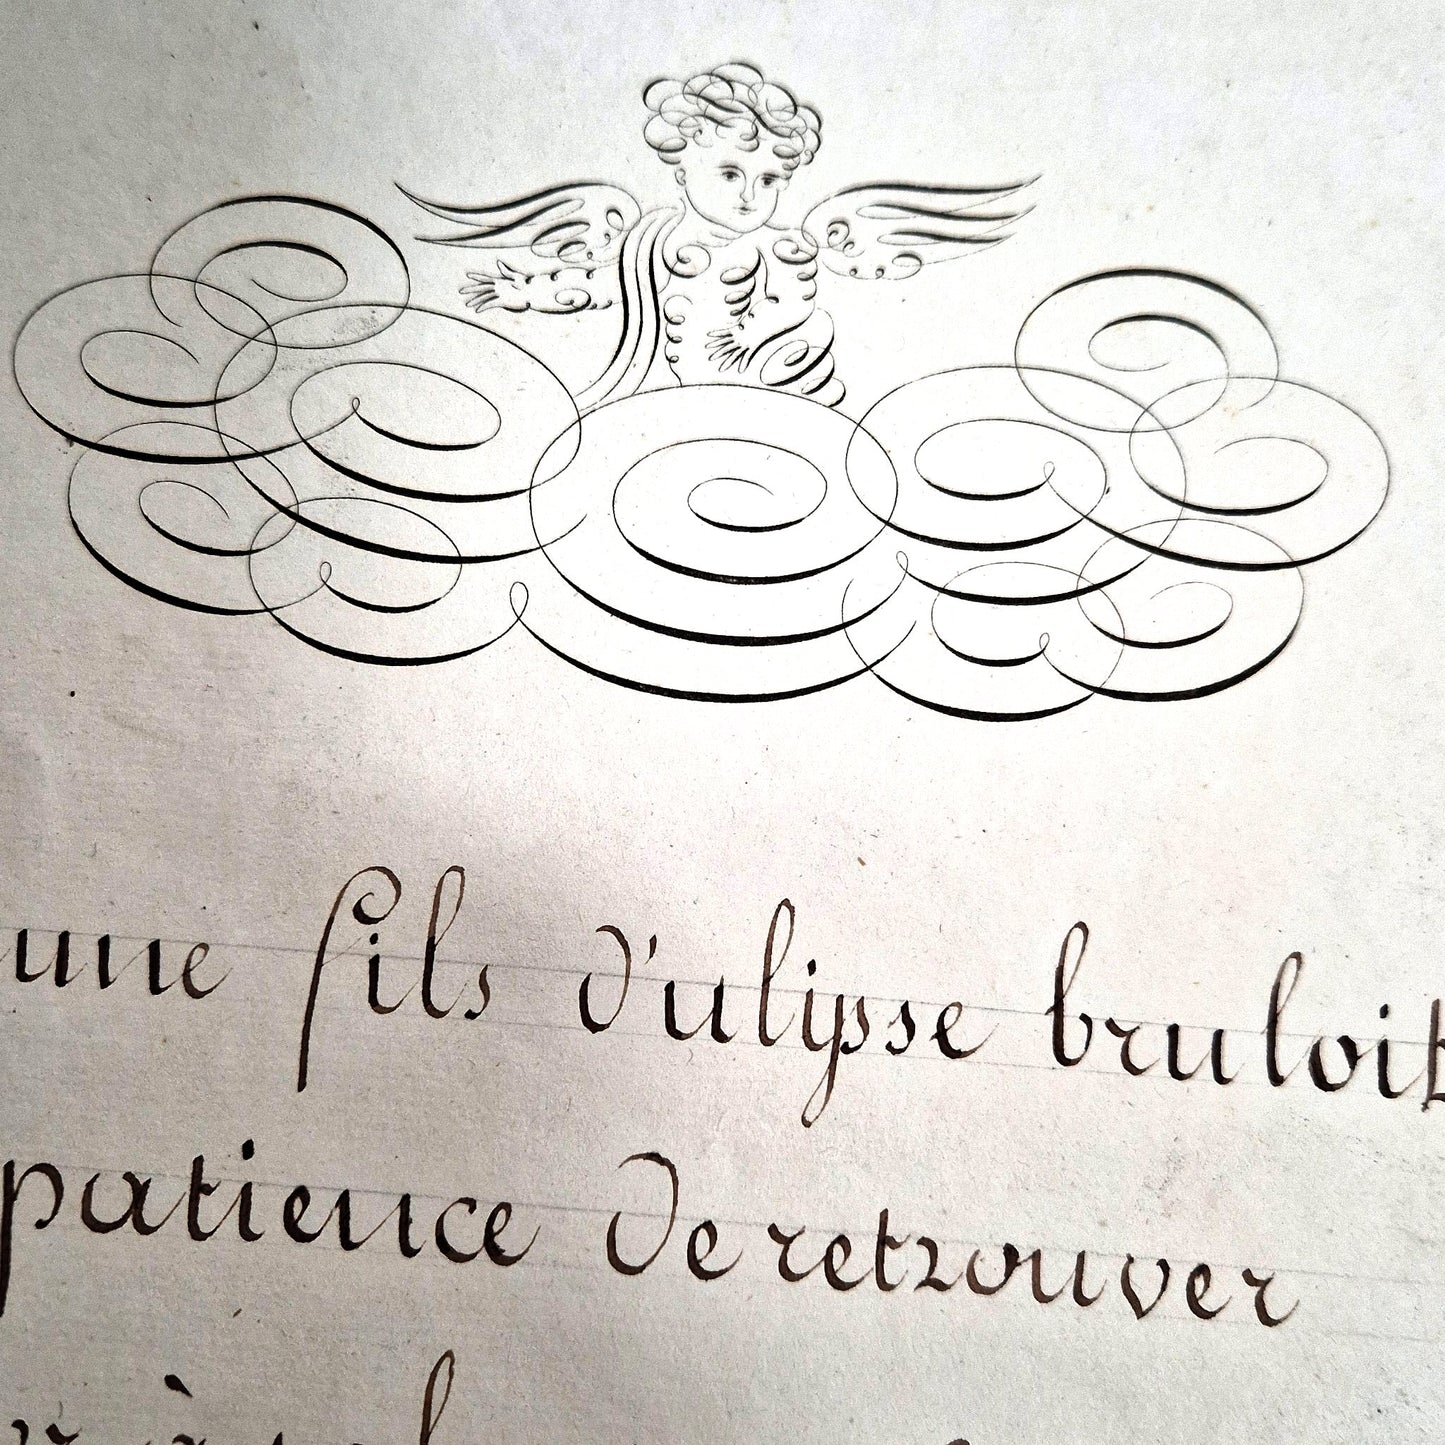 une fils d'ulysse bruloit
patience de retrouver
à